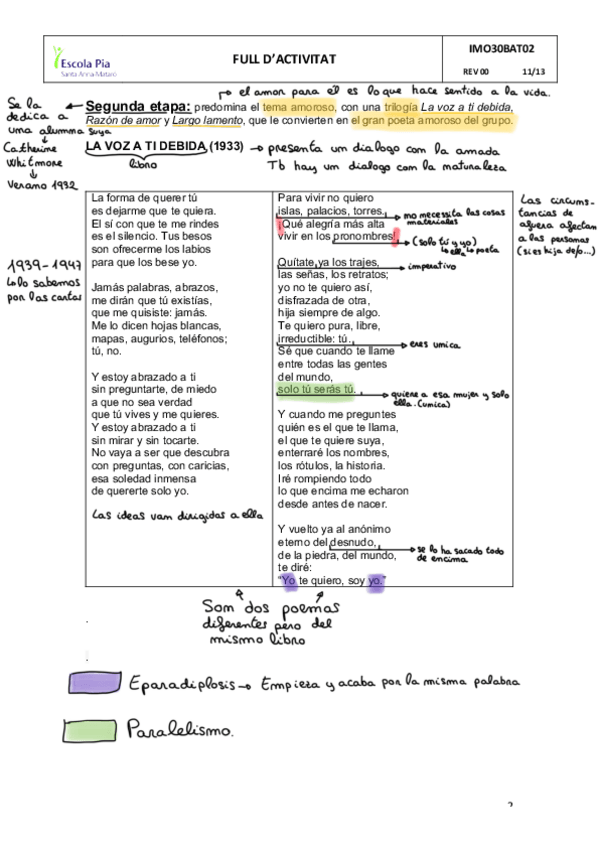 Escola Pia
Santa Anna Mataró
FULL D'ACTIVITAT
IMO30BAT02
REV 00 11/13
el amor para él es lo que hace sentido a la vida.
Se la
dedica a
una alumna suya
Catherine
Whitmore
Verano 1932
Segunda etapa: predomina el tema amoroso, con una trilogía La voz a ti debida,
Razón de amor y Largo lamento, que le convierten en el gran poeta amoroso del grupo.
LA VOZ A TI DEBIDA (1933)
libro
presenta un dialogo con la amada
Tb hay un dialogo con la naturaleza
1939-1947
lo sabemos
por las cartas
La forma de querer tú
es dejarme que te quiera.
El sí con que te me rindes
es el silencio. Tus besos
son ofrecerme los labios
para que los bese yo.
Jamás palabras, abrazos,
me dirán que tú existías,
que me quisiste: jamás.
Me lo dicen hojas blancas,
mapas, augurios, teléfonos;
tú, no.
Y estoy abrazado a ti
sin preguntarte, de miedo
a que no sea verdad
que tú vives y me quieres.
Y estoy abrazado a ti
sin mirar y sin tocarte.
No vaya a ser que descubra
con preguntas, con caricias,
esa soledad inmensa
de quererte solo yo.
Las ideas van dirigidas a ella
Para vivir no quiero
islas, palacios, torres.
no necessita las cosas
materiales
¡Qué alegría más alta
vivir en los pronombres!
(solo tú y yo)
ella
poeta
Quítate ya los trajes,
imperativo
las señas, los retratos;
yo no te quiero así,
disfrazada de otra,
hija siempre de algo.
Te quiero pura, libre,
irreductible: tú.
eres unica
Sé que cuando te llame
entre todas las gentes
del mundo,
solo tú serás tú.
quiere a esa mujer y solo
ella. (unica)
Y cuando me preguntes
quién es el que te llama,
el que te quiere suya,
enterraré los nombres,
los rótulos, la historia.
Iré rompiendo todo
lo que encima me echaron
desde antes de nacer.
Y vuelto ya al anónimo
eterno del desnudo,
se lo ha sacado todo
de encima
de la piedra, del mundo,
te diré:
"Yo te quiero, soy yo."
Las circums-
tancias de
afuera afectan
a las personas
(si es hija de/o...)
Son dos poemas
diferentes pero del
mismo libro
Eparadiplosis → Empieza y acaba por la misma palabra
Paralelismo.